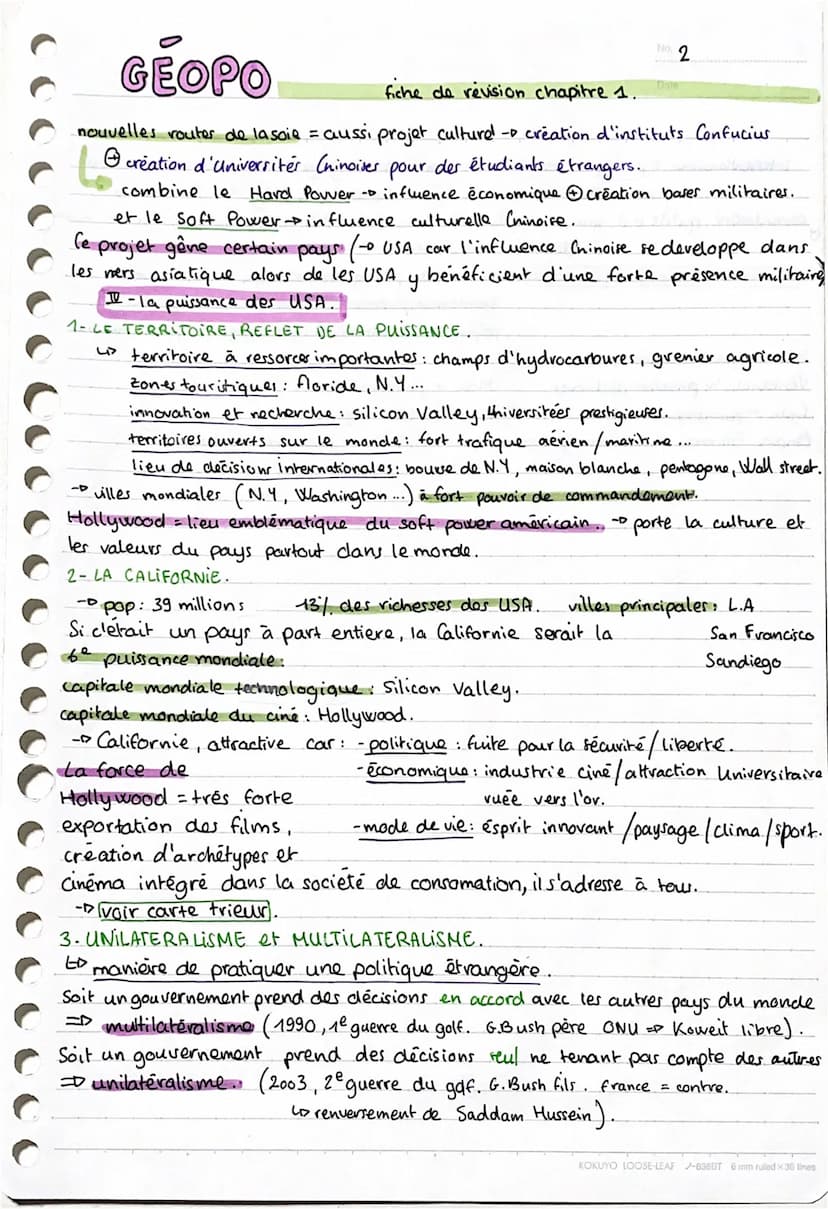 No. 2
GÉOPO
Date
fiche de révision chapitre 1.
nouvelles routes de la soie = aussi projet culturel → création d'instituts Confucius
⊕ création d'Universités Chinoises pour des étudiants étrangers.
combine le Hard Power → influence économique ⊕ création bases militaires.
et le Soft Power → influence culturelle Chinoise.
Ce projet gêne certain pays (→ USA car l'influence Chinoise se developpe dans
les mers asiatique alors de les USA y bénéficient d'une forte présence militaire)
IV - la puissance des USA.
1- LE TERRITOIRE, REFLET DE LA PUISSANCE.
↳ territoire à ressorces importantes : champs d'hydrocarbures, grenier agricole.
zones touritiques : Floride, N.Y...
innovation et recherche : silicon Valley, Universitées prestigieuses.
territoires ouverts sur le monde : fort trafique aérien / maritime ...
lieu de décisions internationales : bourse de N.Y, maison blanche, pentagone, Wall street.
→ villes mondiales (N.Y, Washington ...) à fort pouvoir de commandement.
Hollywood = lieu emblématique du soft power américain. → porte la culture et
les valeurs du pays partout dans le monde.
2- LA CALIFORNIE.
→ pop : 39 millions 13% des richesses des USA. villes principales : L.A
Si c'était un pays à part entiere, la Californie serait la San Francisco
6e puissance mondiale. Sandiego
capitale mondiale technologique : Silicon Valley.
capitale mondiale du ciné : Hollywood.
→ Californie, attractive car : - politique : fuite pour la sécurité / liberté.
La force de - économique : industrie ciné / attraction Universitaire
Hollywood = très forte ruée vers l'or.
exportation des films, - mode de vie : ésprit innovant / paysage / clima / sport.
création d'archétypes et
cinéma intégré dans la société de consomation, il s'adresse à tous.
→ voir carte trieur.
3. UNILATERALISME et MULTILATERALISME.
↳ manière de pratiquer une politique étrangère.
Soit un gouvernement prend des décisions en accord avec les autres pays du monde
⇒ multilatéralisme (1990, 1e guerre du golf. G.Bush père ONU ⇒ Koweit libre).
Soit un gouvernement prend des décisions seul ne tenant pas compte des autres
⇒ unilatéralisme. (2003, 2e guerre du golf. G.Bush fils. france = contre.
↳ renversement de Saddam Hussein).
KOKUYO LOOSE-LEAF ノ-836BT 6 mm ruled × 36 lines